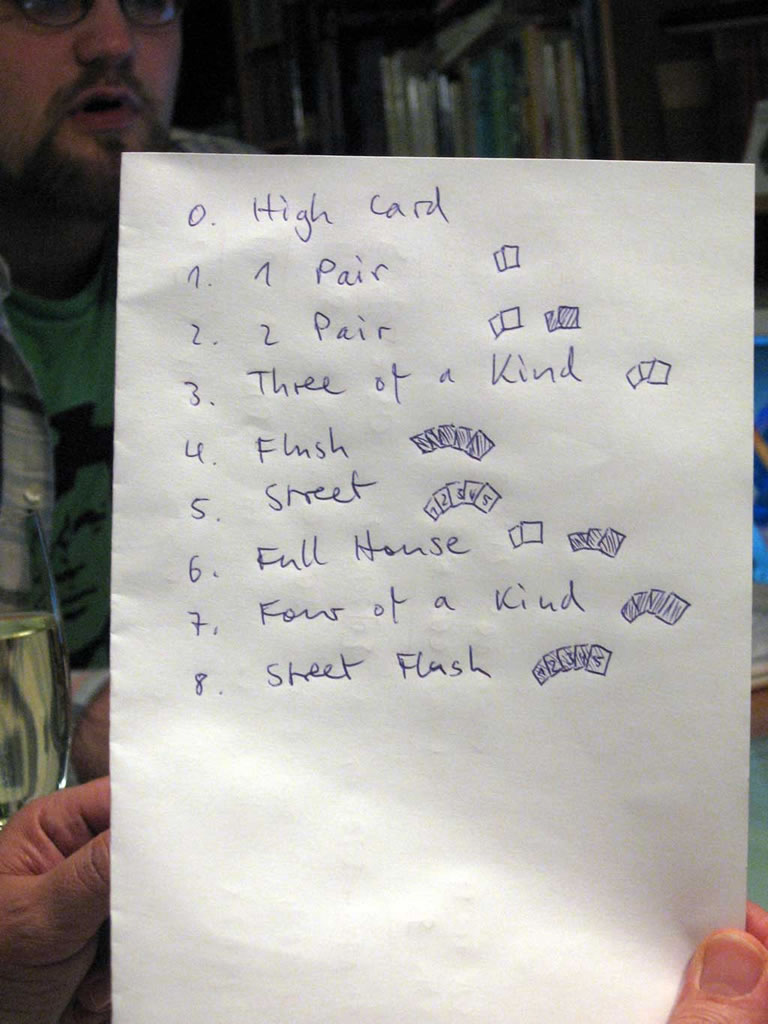 0. High Card
1. 1 Pair
2. 2 Pair
3. Three of a Kind
4. Flush
5. Street 1 2 3 4 5
6. Full House
7. Four of a Kind
8. Street Flush 1 2 3 4 5